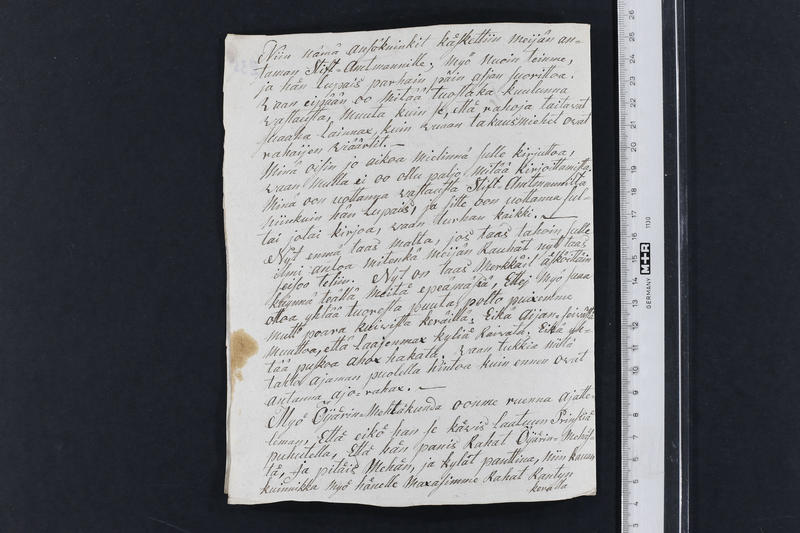 Niin nämä ansökninkit käskettiin meijän an-
taman Stift-Amtmannille, Myö nuoin teimme,
ja hän lupais parhain päin asjan suorittoa.
vaan eipään oo mitää tuostaka kuulunna
vastausta, muuta kuin se, että rahoja taitavat
soaaha lainnax, kuin vuan takausmiehet ovat
rahaijen väärtit. —
Minä oisin jo aikoa mielinnä sulle kirjuttoa,
vaan mulla ei oo ollu paljo mitää kirjoittamista.
Minä oon uottanna vastausta Stift-Amtmannilta
niinkuin hän lupais, ja sitte oon uottanna sul-
tai jotai kirjoa, vaan turhan kaikki. —
Nyt ennä taas malta, jos taas tahoin sulle
ilmi antoa mitenkä meijän Rauhat nytt taas
seisoo teliin. Nyt on taas Merkkäit
käynnä teällä meitä epeämässä, Ettej Myö saa
ottoa yhtää tuoresta puuta poltto puixemme
mutt poara kuivista keräillä, Eikä Aijan-seivästä
muuttoa, että laajenmax kyliä Raivata, Eikä yh-
tää puskoa ahox hakata. vaan tukkia niillä
tahto ajaman puolella hintoa kuin ennen ovat
antanna ajo-rahax. —
Myö Öijärin-Mehtäkunda oomme ruenna ajatte-
leman, Että eikö san se kävis laatuun Prinssiä
puhutella, Että hän panis Rahat Öijärin-Mehäs-
tä, Ja pitäis Mehän, ja kylät panttina, niin kauvn
kuinnikka Myö hänelle Maxasimme Rahat Rantyn
kerälla